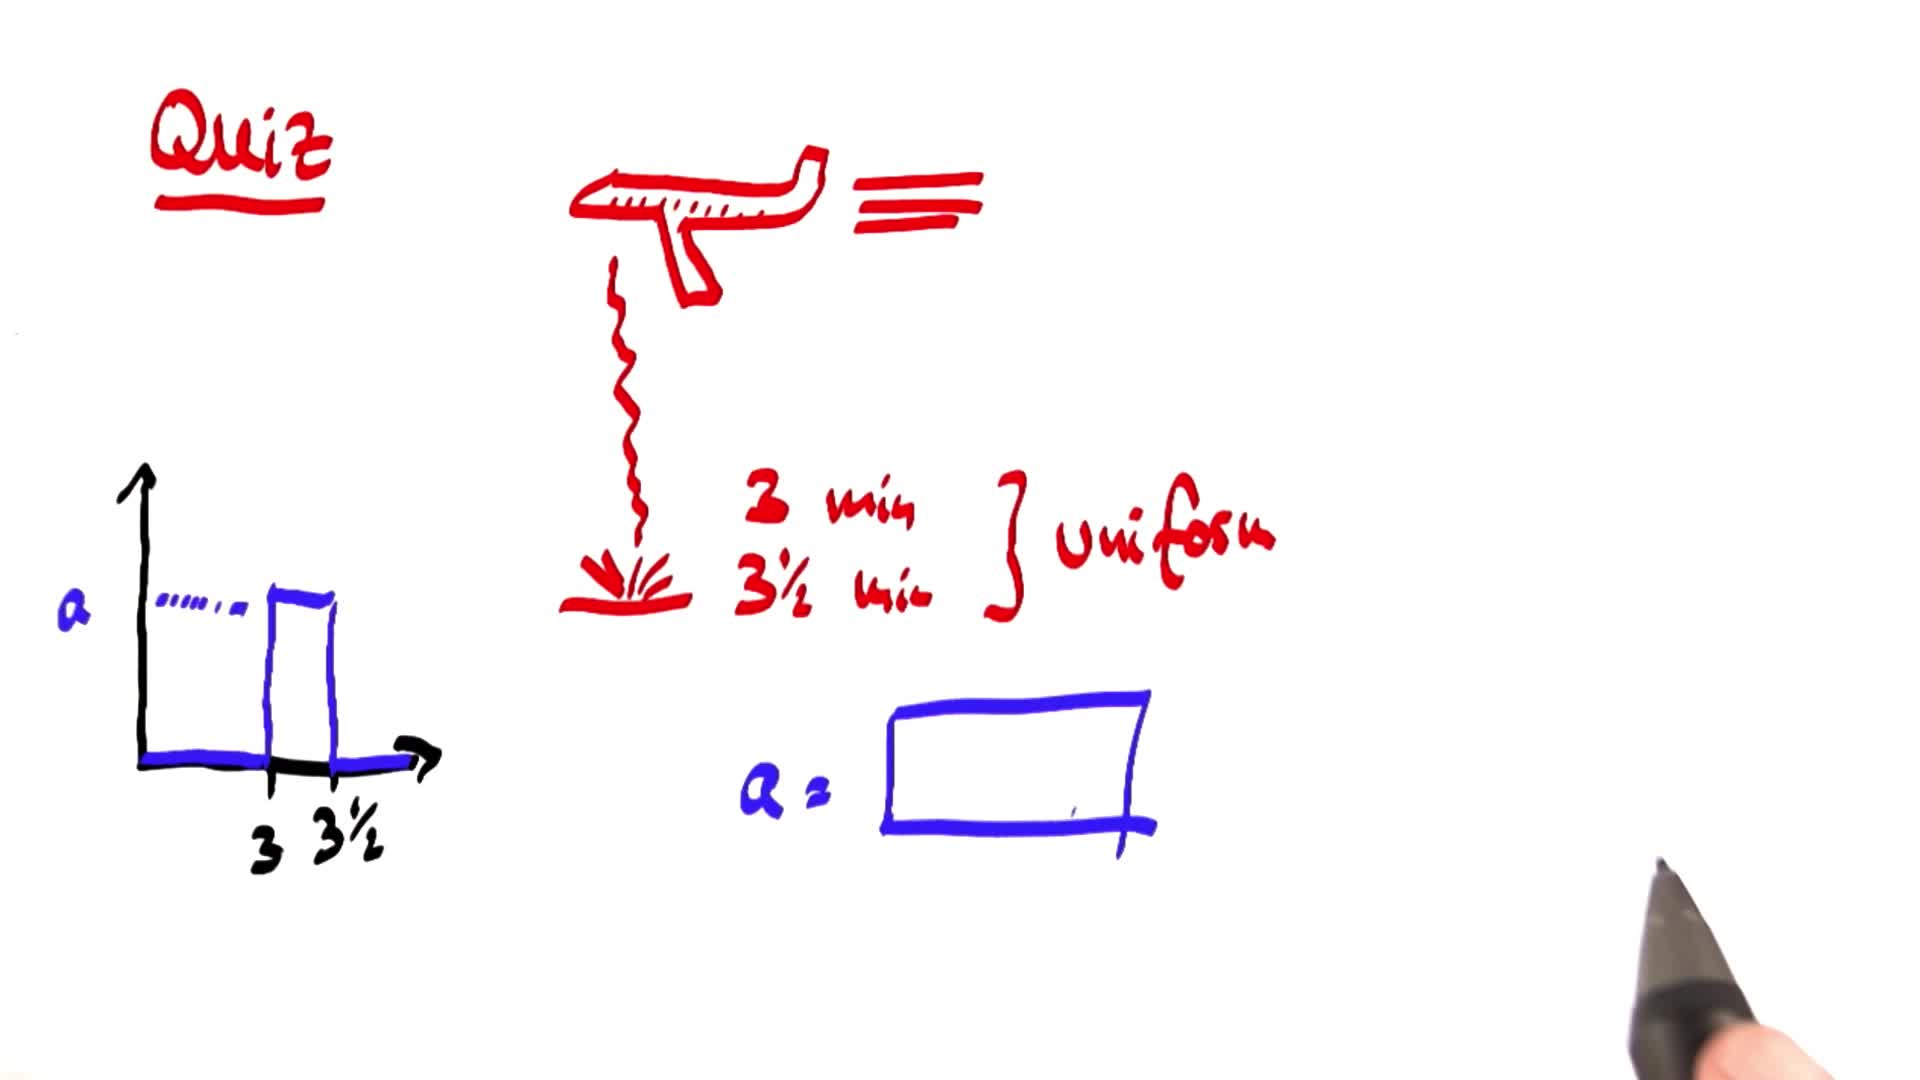 Quiz
3 min
3½ min } uniform
a
3 3½
a =